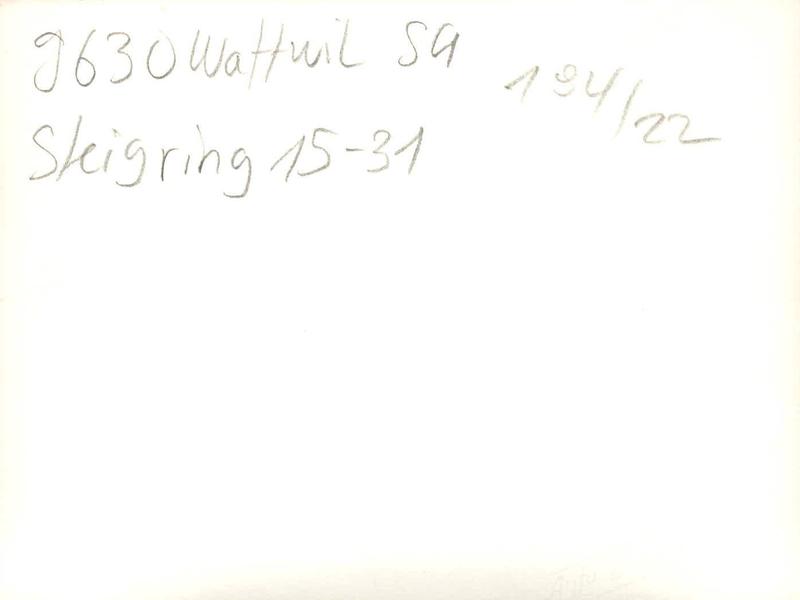 9630 Wattwil SG
194/22
Steigring 15-31